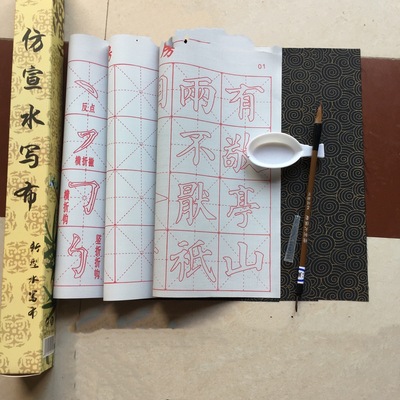 仿宣水写布
新型水写布
反点
横折撇
横折钩
竖折折钩
01
有敬亭山
兩不厭祇